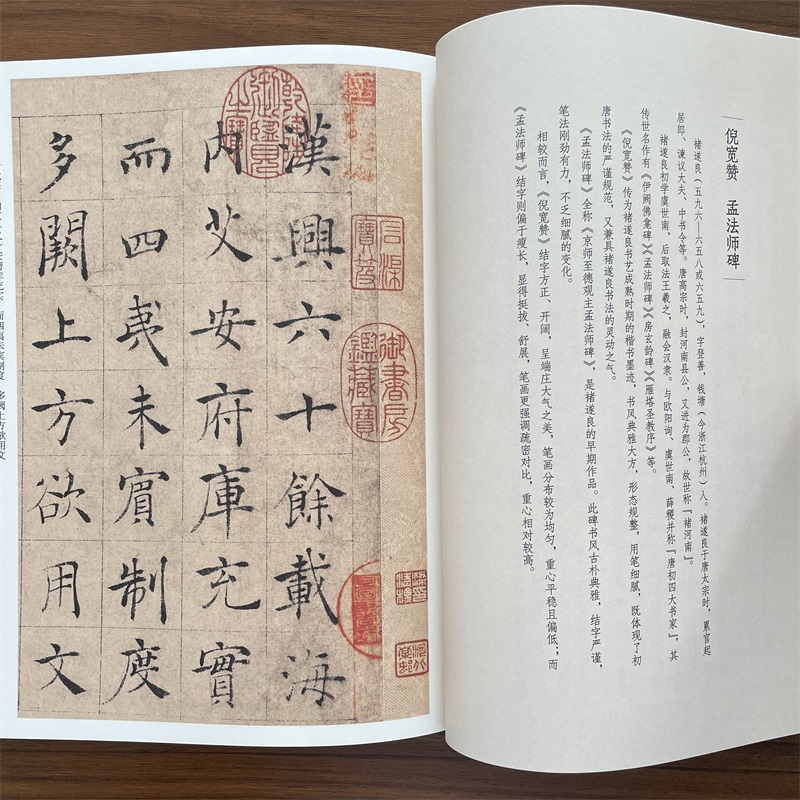 倪宽赞 孟法师碑
褚遂良（五九六—六五八或六五九），字登善，钱塘（今浙江杭州）人。褚遂良于唐太宗时，累官起
居郎、谏议大夫、中书令等。唐高宗时，封河南县公，又进为郡公，故世称『褚河南』。
褚遂良初学虞世南，后取法王羲之，融会汉隶。与欧阳询、虞世南、薛稷并称『唐初四大书家』，其
传世名作有《伊阙佛龛碑》《孟法师碑》《房玄龄碑》《雁塔圣教序》等。
《倪宽赞》传为褚遂良书艺成熟时期的楷书墨迹，书风典雅大方，形态规整，用笔细腻，既体现了初
唐书法的严谨规范，又兼具褚遂良书法的灵动之气。
《孟法师碑》全称《京师至德观主孟法师碑》，是褚遂良的早期作品。此碑书风古朴典雅，结字严谨，
笔法刚劲有力，不乏细腻的变化。
相较而言，《倪宽赞》结字方正、开阔，呈端庄大气之美，笔画分布较为均匀，重心平稳且偏低；而
《孟法师碑》结字则偏于瘦长，显得挺拔、舒展，笔画更强调疏密对比，重心相对较高。
石渠寶笈
御書房鑑藏寶
乾隆御覽之寶
漢興六十餘載海
内艾安府庫充實
而四夷未賓制度
多闕上方欲用文
而四夷未宾制度 多阙上方欲用文